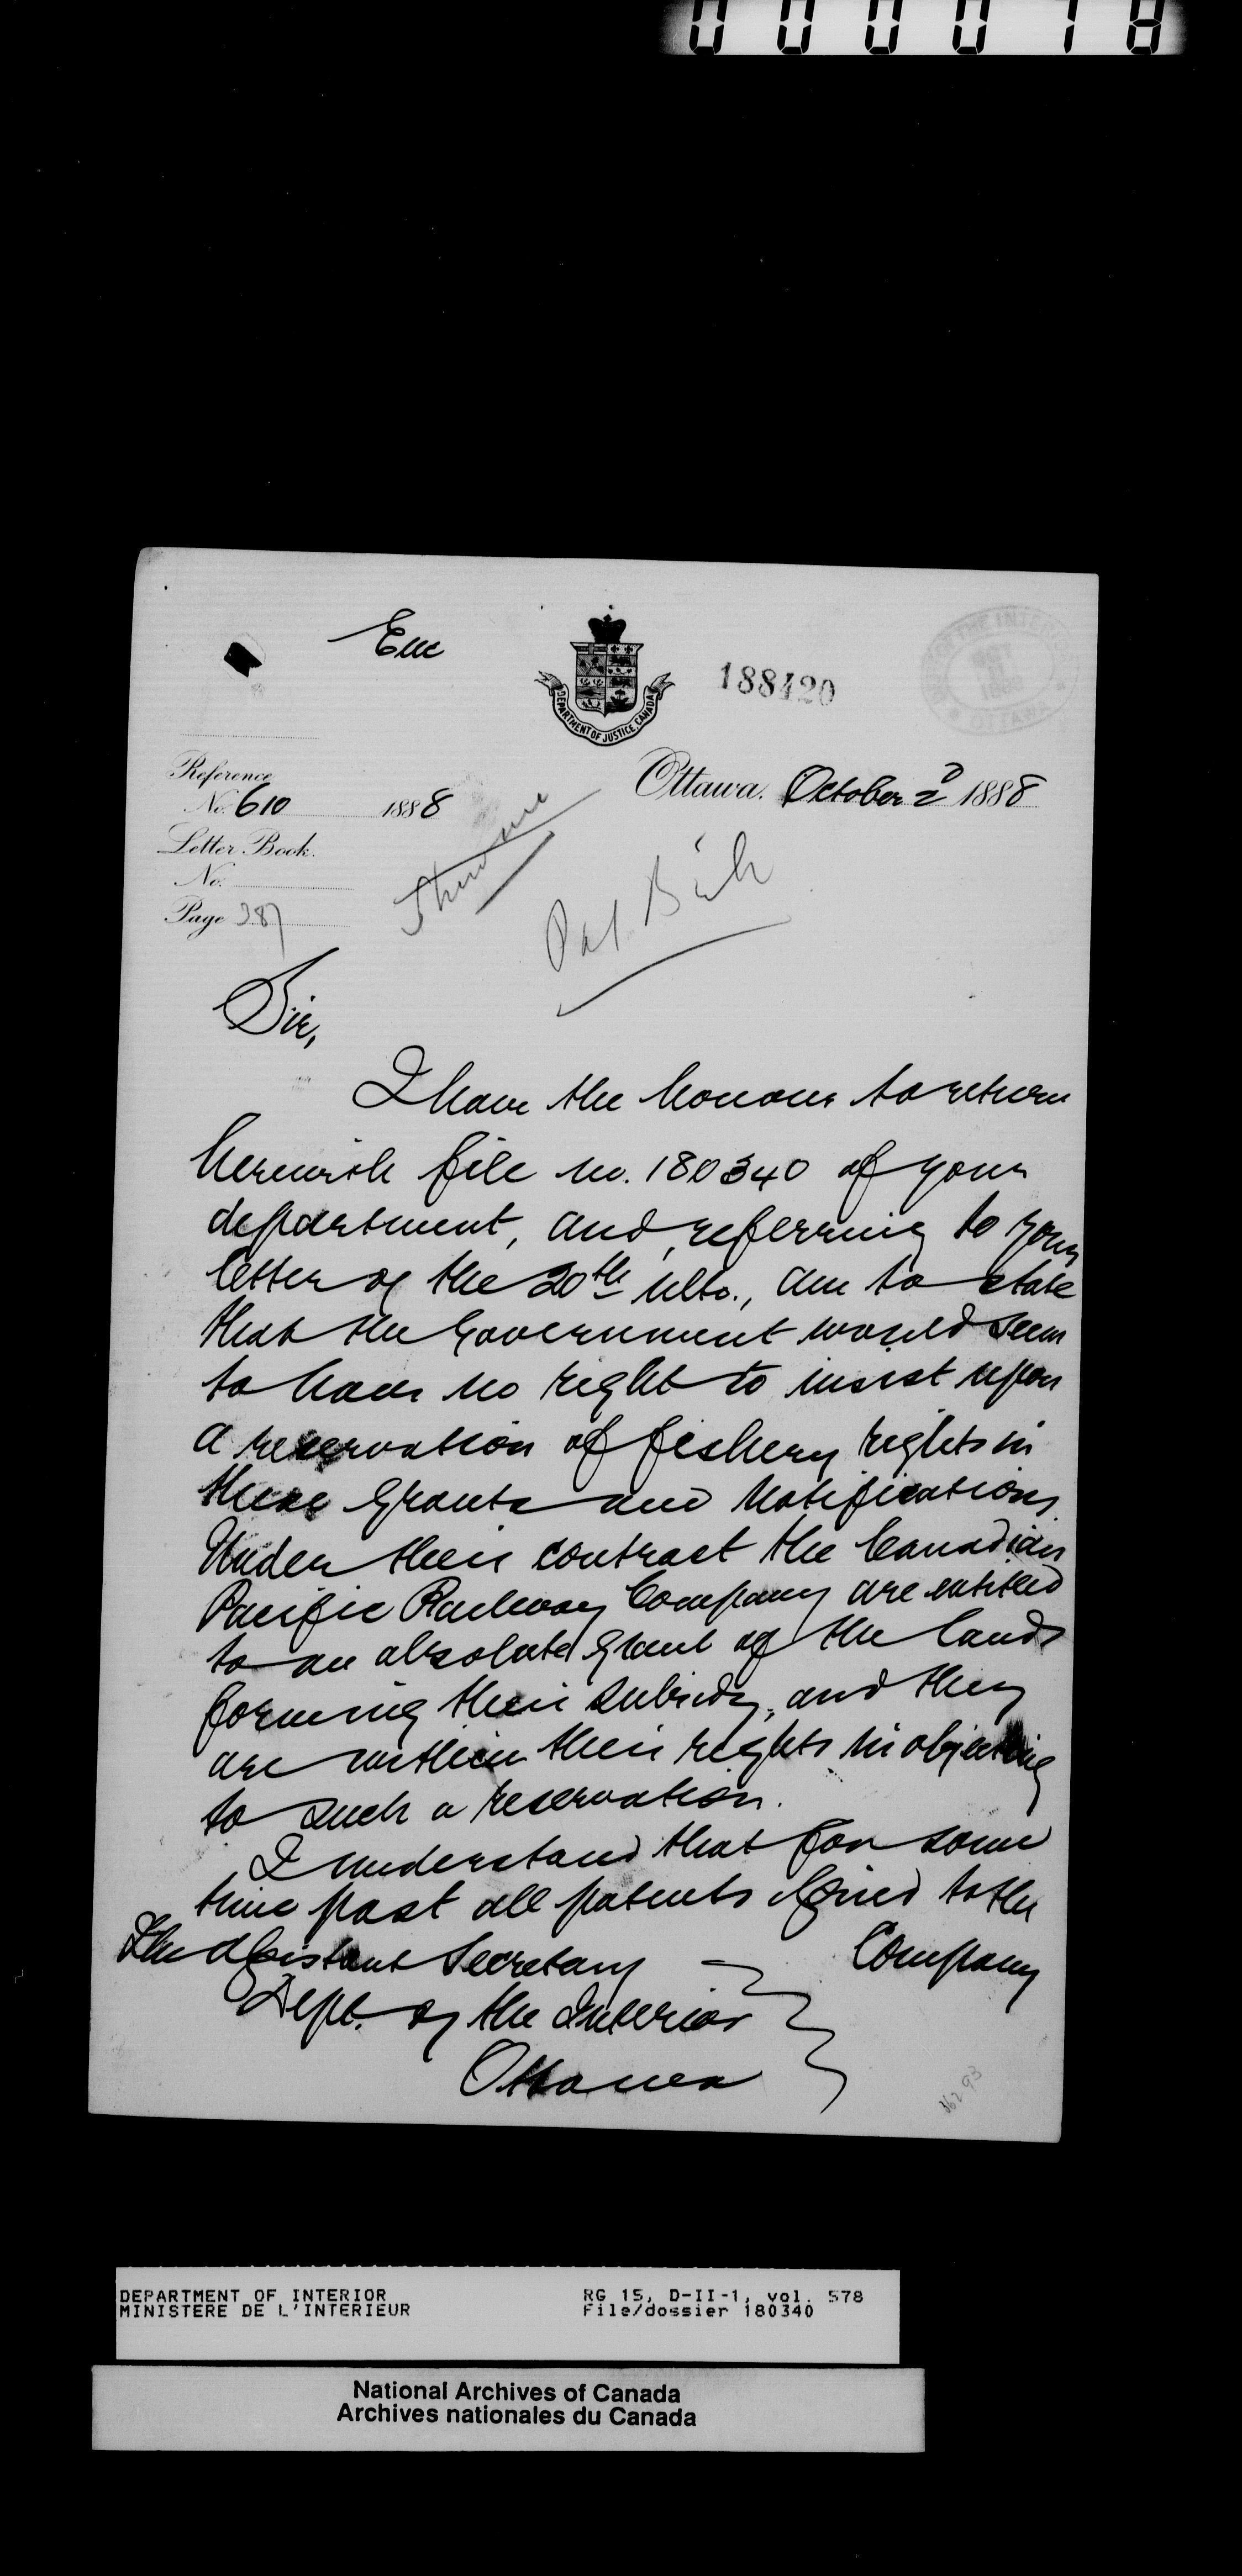 000078
Enc
DEPARTMENT OF JUSTICE, CANADA
188420
OF THE INTERIOR
OCT
1888
OTTAWA
Reference
No. 610 1888
Ottawa. October 2d 1888
Letter Book.
No.
Page 387
Sir,
I have the honour to return
herewith file no. 180340 of your
department, and, referring to your
letter of the 20th ulto., am to state
that the Government would seem
to have no right to insist upon
a reservation of fishery rights in
these grants and notifications.
Under their contract the Canadian
Pacific Railway Company are entitled
to an absolute grant of the lands
forming their subsidy, and they
are within their rights in objecting
to such a reservation.
I understand that for some
time past all patents issued to the
Company
The Assistant Secretary
Dept. of the Interior
Ottawa
DEPARTMENT OF INTERIOR
MINISTERE DE L'INTERIEUR
RG 15, D-II-1, vol. 578
File/dossier 180340
National Archives of Canada
Archives nationales du Canada